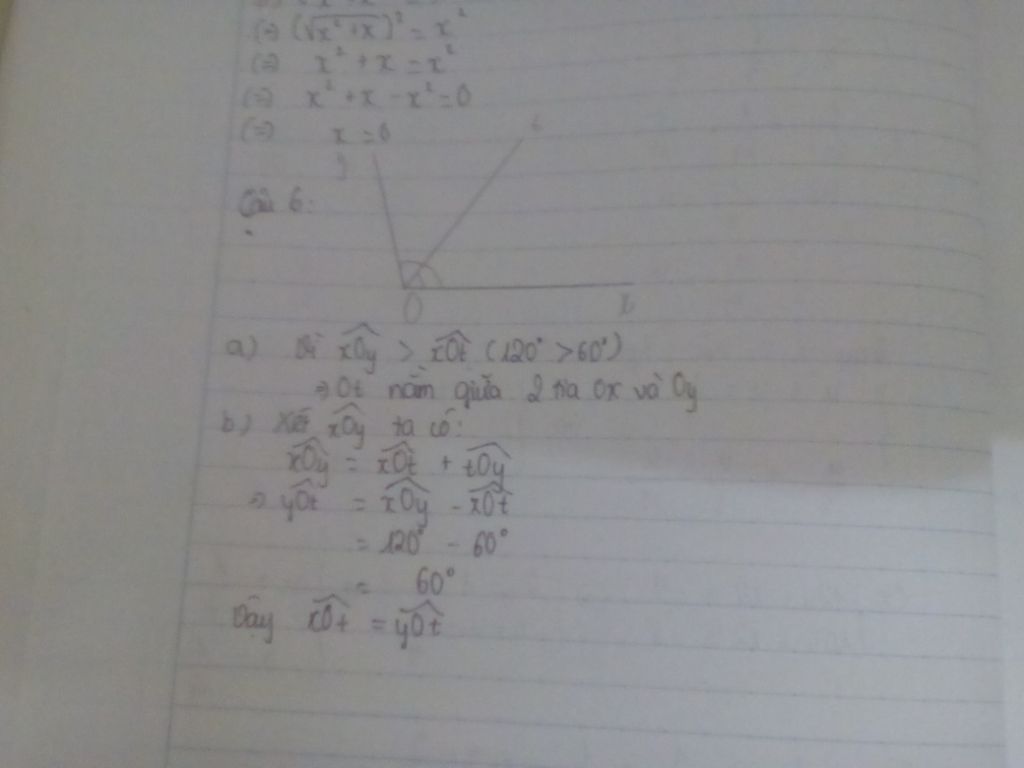 (=) (√x² + x)² = x²
(=) x² + x = x²
(=) x² + x - x² = 0
(=) x = 0
y t
Câu 6:
O x
a) Vì xÔy > xÔt (120° > 60°)
=> Ot nằm giữa 2 tia Ox và Oy
b) Xét xÔy ta có:
xÔy = xÔt + tÔy
=> yÔt = xÔy - xÔt
= 120° - 60°
= 60°
Vậy xÔt = yÔt